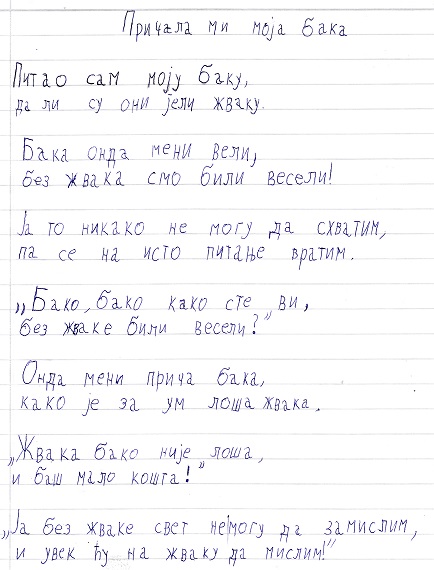 Причала ми моја бака
Питао сам моју баку,
да ли су они јели жваку.
Бака онда мени вели,
без жвака смо били весели!
Ја то никако не могу да схватим,
па се на исто питање вратим.
„Бако, бако како сте ви,
без жваке били весели?"
Онда мени прича бака,
како је за ум лоша жвака.
„Жвака бако није лоша,
и баш мало кошта!"
„Ја без жваке свет не могу да замислим,
и увек ћу на жваку да мислим!"